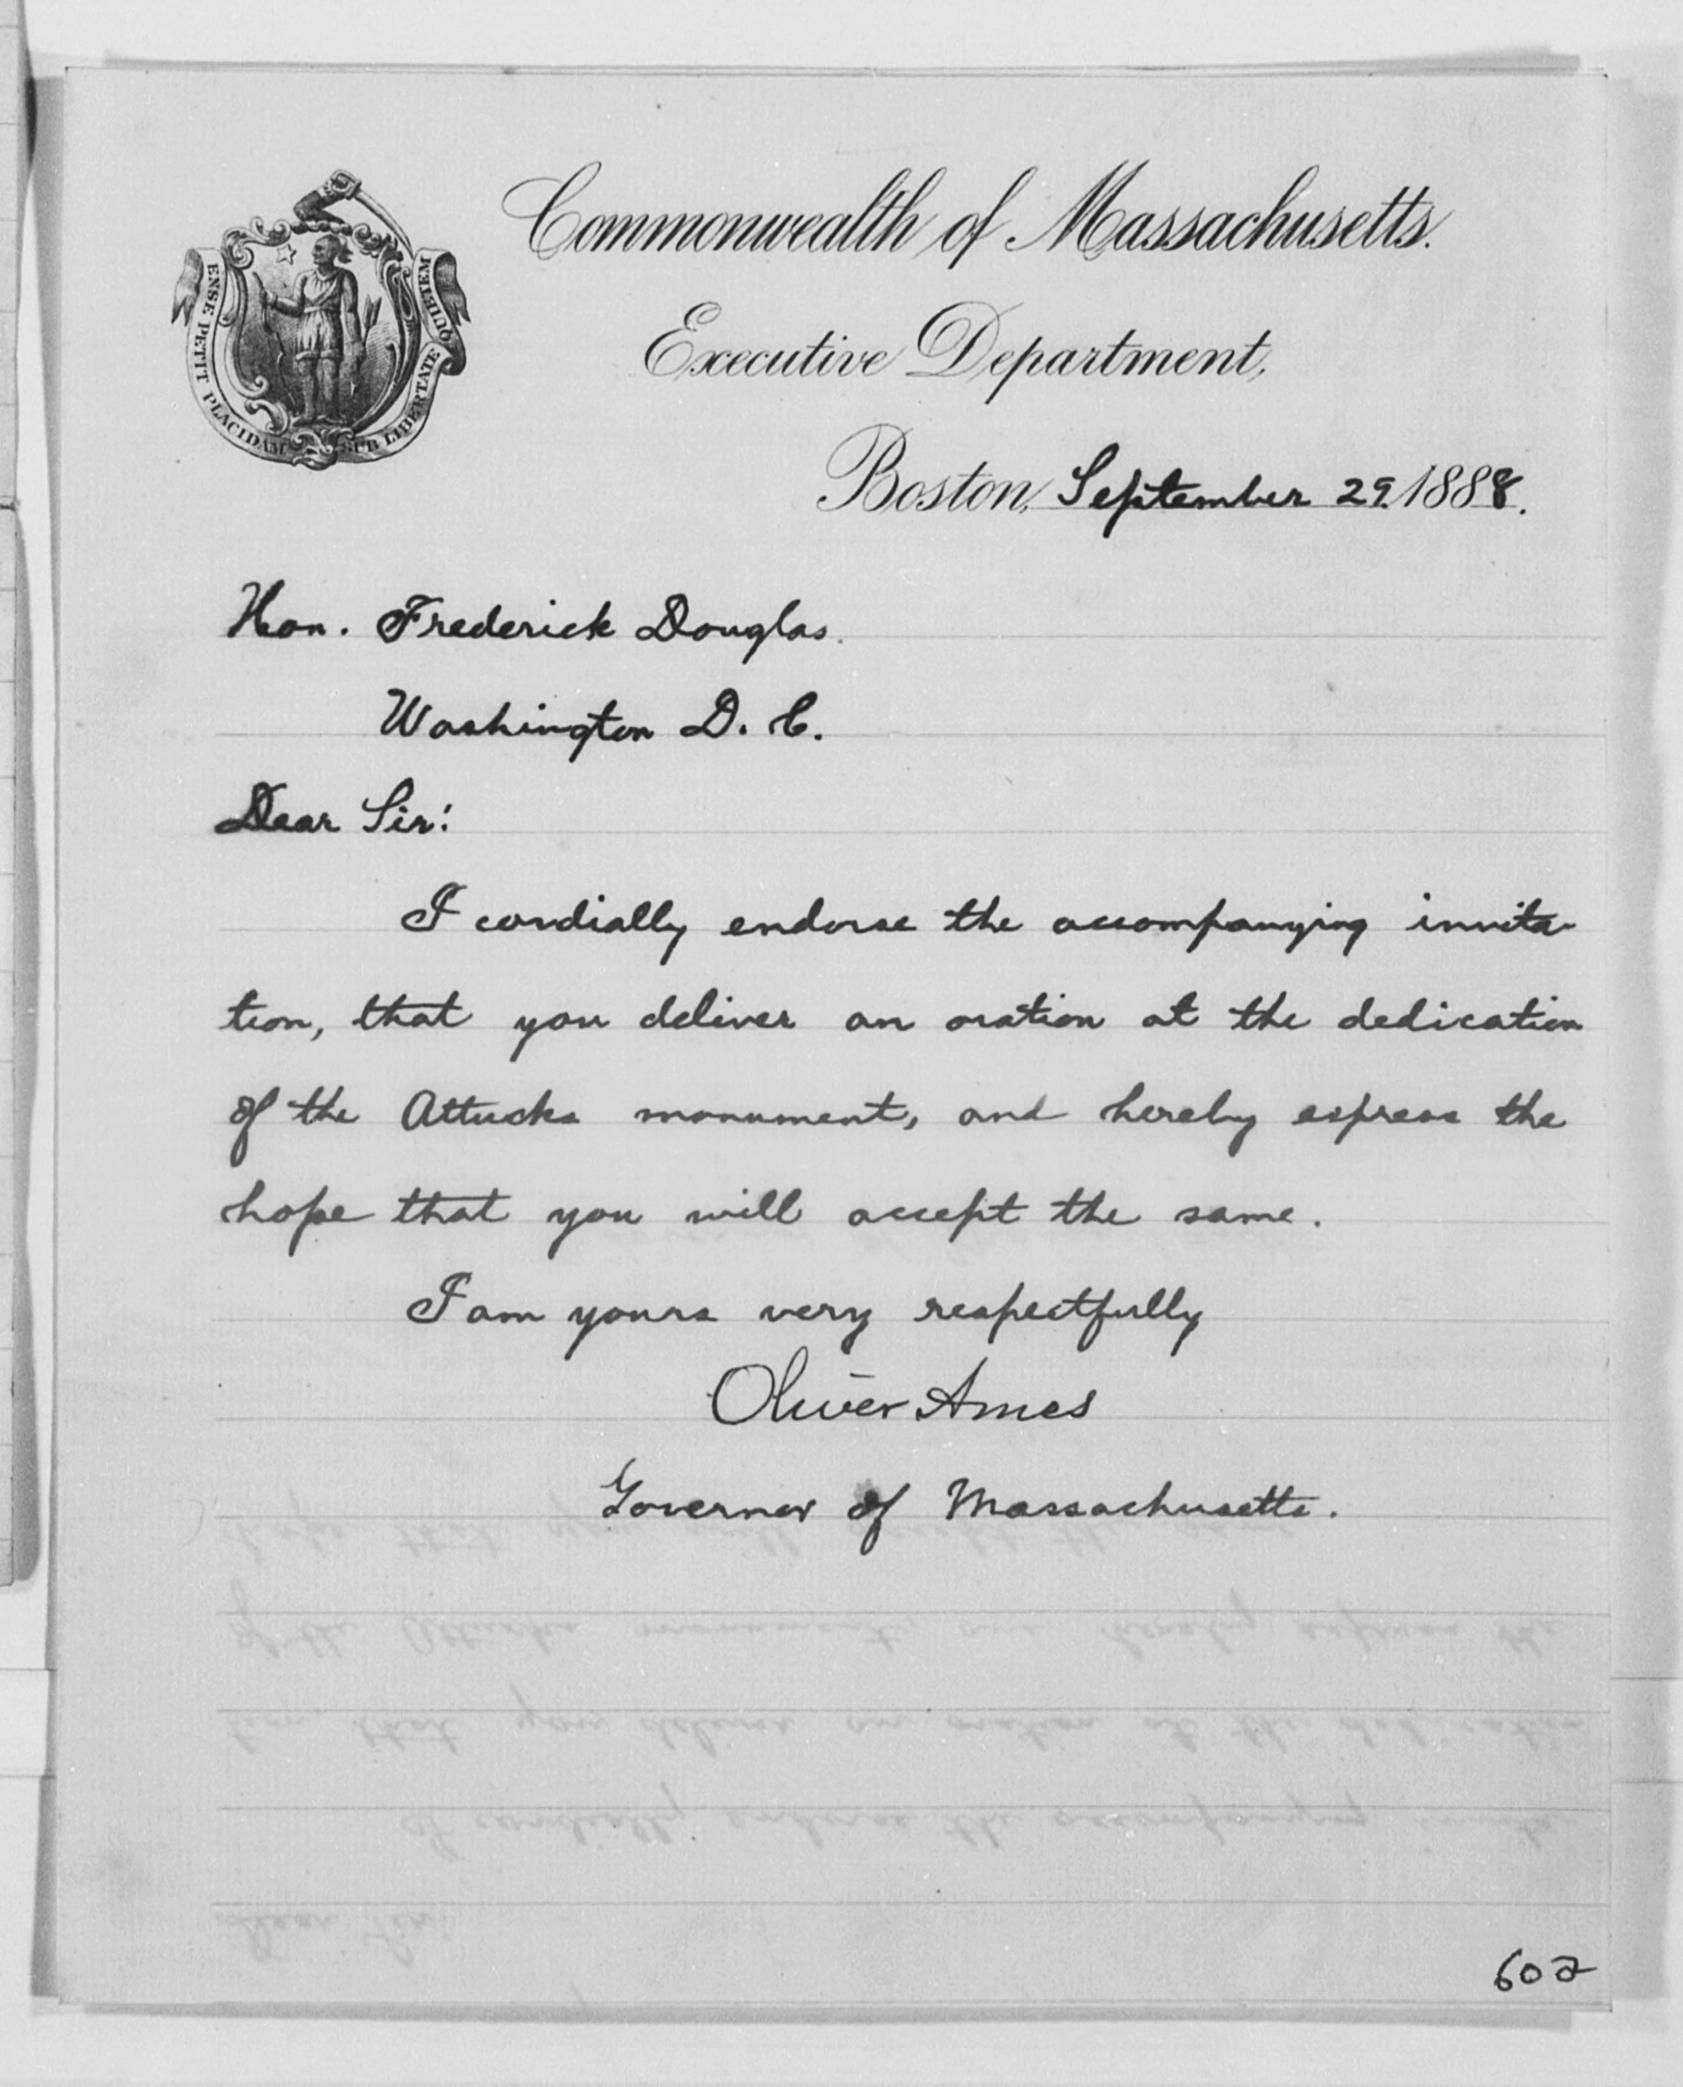 ENSE PETIT PLACIDAM SUB LIBERTATE QUIETEM
Commonwealth of Massachusetts.
Executive Department,
Boston, September 29. 1888.
Hon. Frederick Douglas.
Washington D. C.
Dear Sir:
I cordially endorse the accompanying invita-
tion, that you deliver an oration at the dedication
of the Attucks monument, and hereby express the
hope that you will accept the same.
I am yours very respectfully
Oliver Ames
Governor of Massachusetts.
602